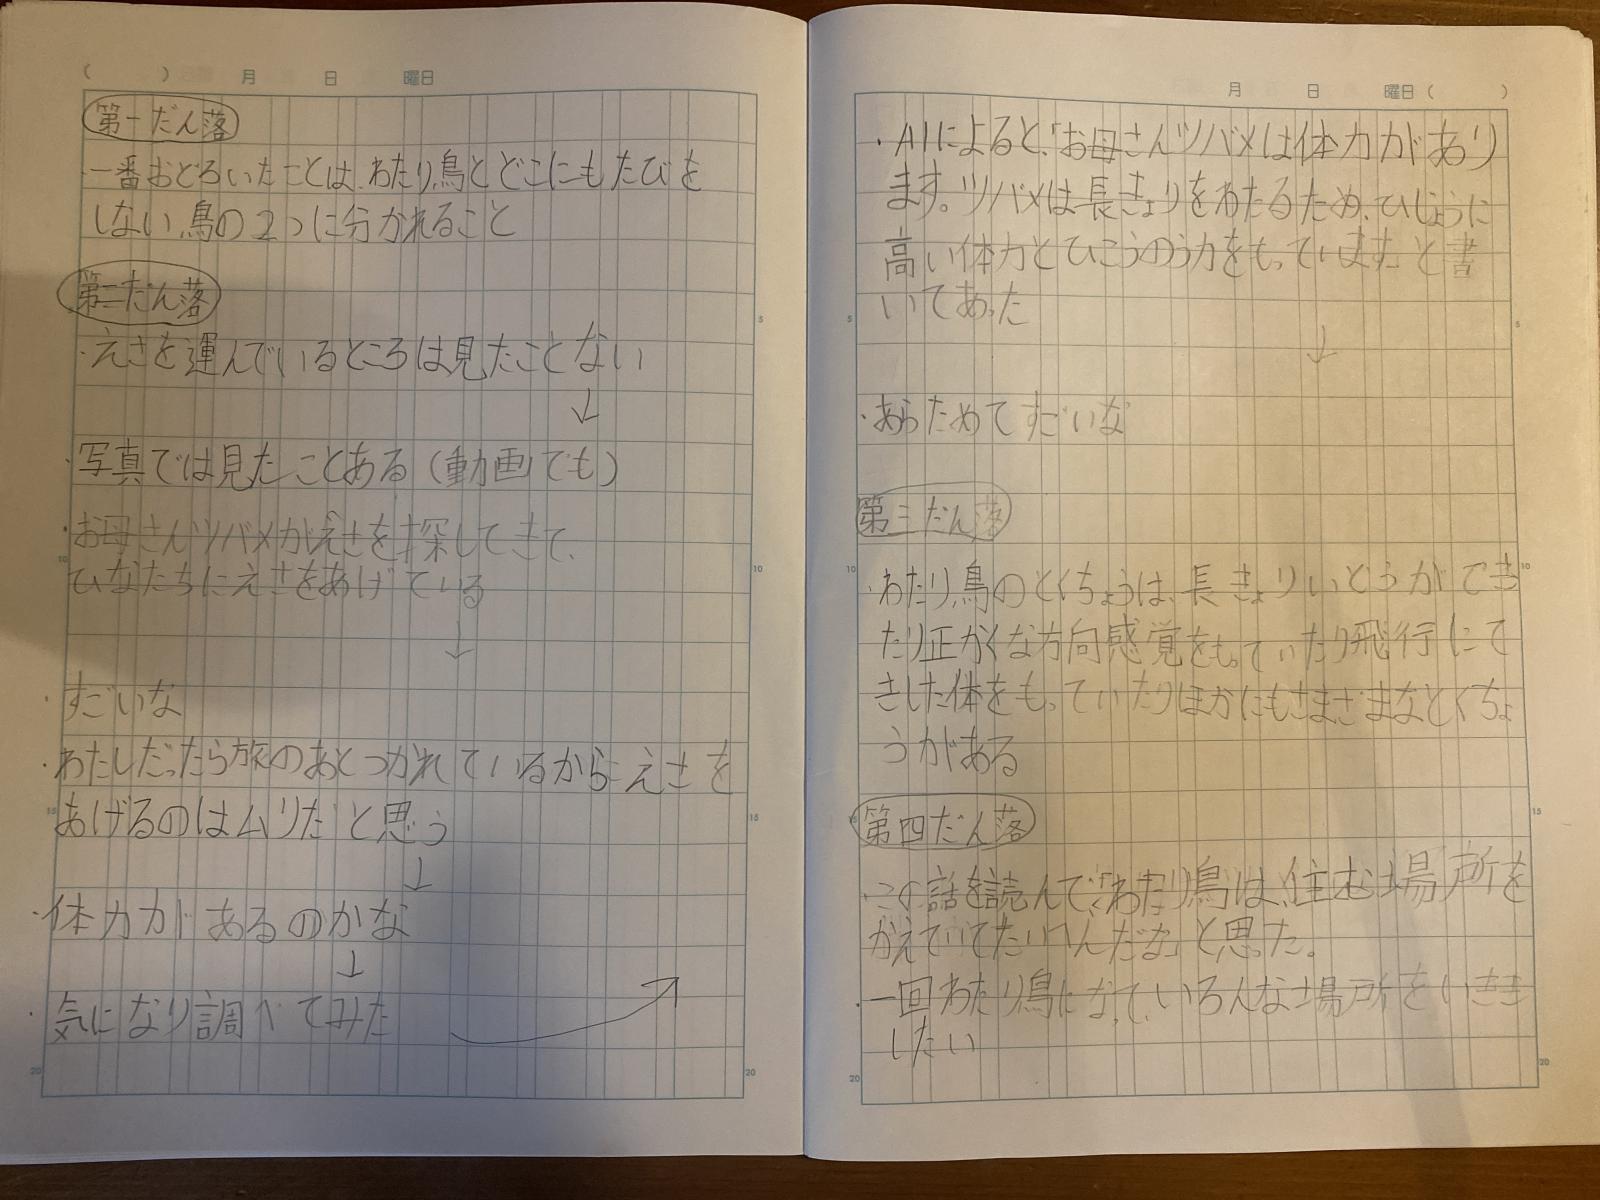 ( ) 月 日 曜日
第一だん落
・一番おどろいたことは、わたり鳥とどこにもたびを
しない鳥の2つに分かれること
第二だん落
・えさを運んでいるところは見たことない
↓
・写真では見たことある(動画でも)
・お母さんツバメがえさを探してきて、
ひなたちにえさをあげている
↓
・すごいな
・わたしだったら旅のあとつかれているからえさを
あげるのはムリだと思う
↓
・体力があるのかな
↓
・気になり調べてみた
5
10
15
20
月 日 曜日 ( )
・AIによると、「お母さんツバメは体力があり
ます。ツバメは長きょりをわたるため、ひじょうに
高い体力とひこうのう力をもっています。と書
いてあった
↓
・あらためてすごいな
第三だん落
・わたり鳥のとくちょうは、長きょりいどうができ
たり正かくな方向感覚をもっていたり飛行にて
きした体をもっていたりほかにもさまざまなとくちょ
うがある
第四だん落
・この話を読んで、「わたり鳥は、住む場所を
かえていてたいへんだな」と思った。
・一回わたり鳥になって、いろんな場所をいきき
したい
5
10
15
20